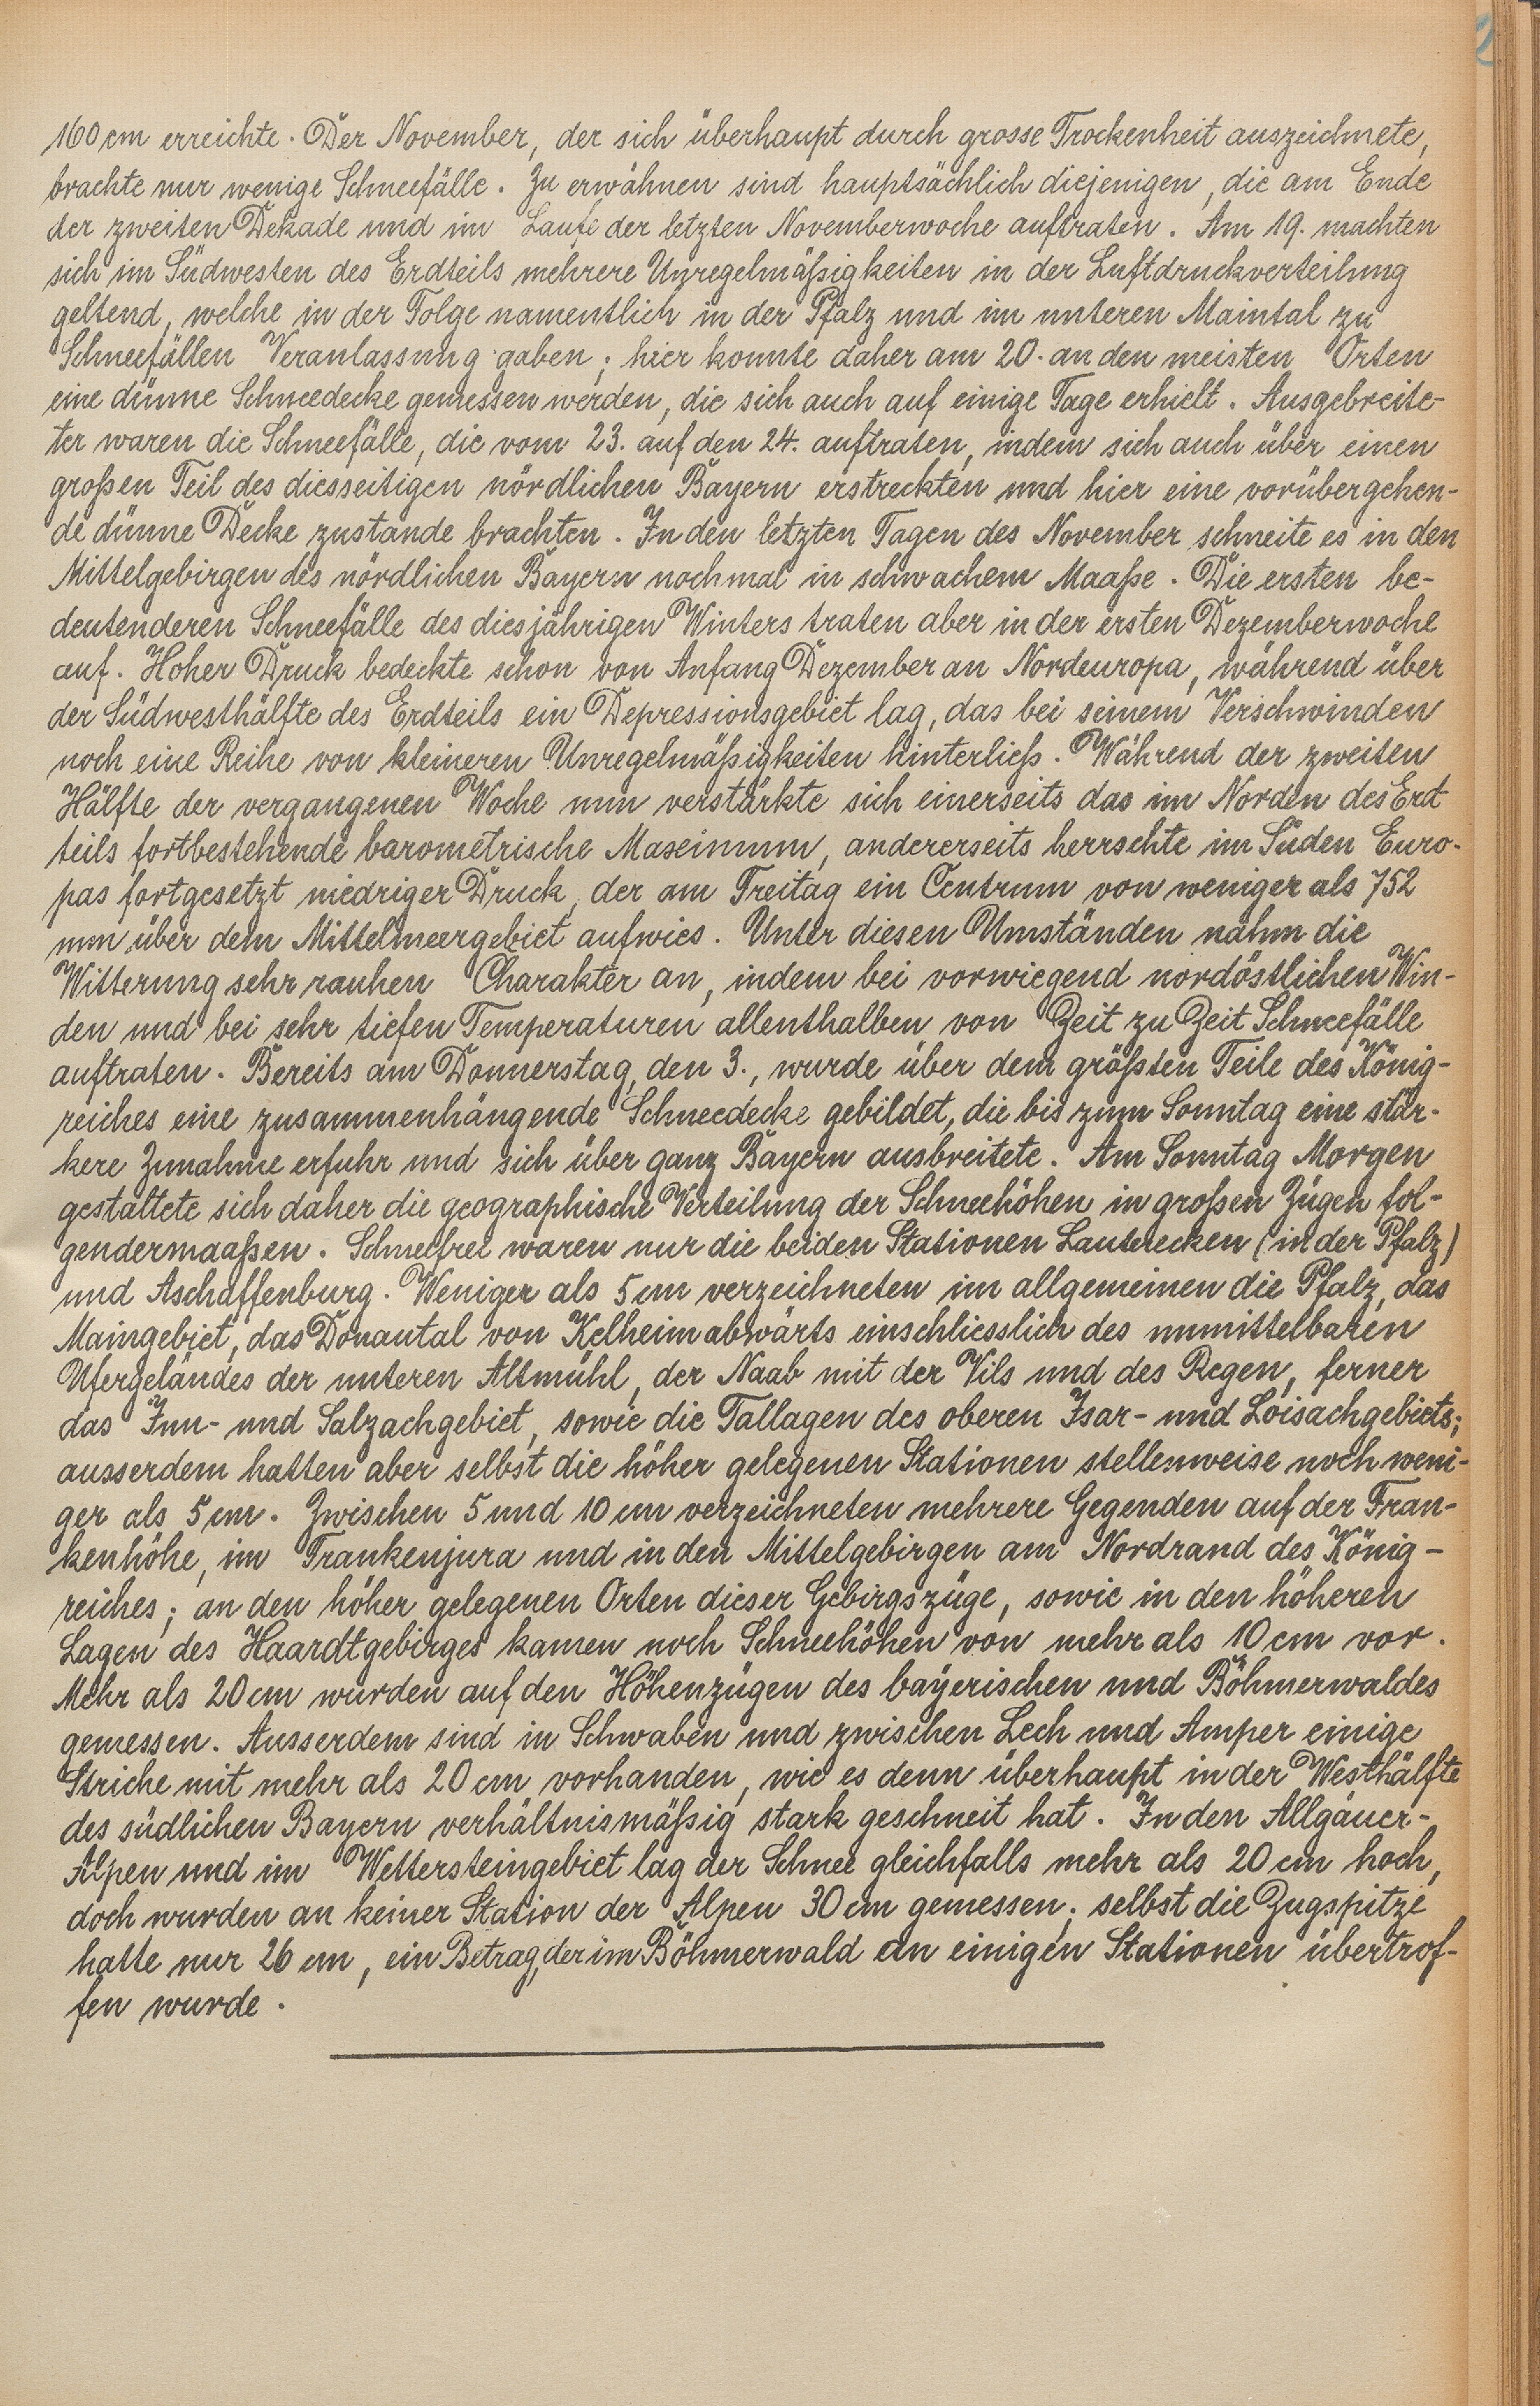 160 cm erreichte. Der November, der sich überhaupt durch grosse Trockenheit auszeichnete,
brachte nur wenige Schneefälle. Zu erwähnen sind hauptsächlich diejenigen, die am Ende
der zweiten Dekade und im Laufe der letzten Novemberwoche auftraten. Am 19. machten
sich im Südwesten des Erdteils mehrere Unregelmäßigkeiten in der Luftdruckverteilung
geltend, welche in der Folge namentlich in der Pfalz und im unteren Maintal zu
Schneefällen Veranlassung gaben; hier konnte daher am 20. an den meisten Orten
eine dünne Schneedecke gemessen werden, die sich auch auf einige Tage erhielt. Ausgebreite-
ter waren die Schneefälle, die vom 23. auf den 24. auftraten, indem sich auch über einen
großen Teil des diesseitigen nördlichen Bayern erstreckten und hier eine vorübergehen-
de dünne Decke zustande brachten. In den letzten Tagen des November schneite es in den
Mittelgebirgen des nördlichen Bayern nochmal in schwachem Maaße. Die ersten be-
deutenderen Schneefälle des diesjährigen Winters traten aber in der ersten Dezemberwoche
auf. Hoher Druck bedeckte schon von Anfang Dezember an Nordeuropa, während über
der Südwesthälfte des Erdteils ein Depressionsgebiet lag, das bei seinem Verschwinden
noch eine Reihe von kleineren Unregelmäßigkeiten hinterließ. Während der zweiten
Hälfte der vergangenen Woche nun verstärkte sich einerseits das im Norden des Erd
teils fortbestehende barometrische Maximum, andererseits herrschte im Süden Euro-
pas fortgesetzt niedriger Druck, der am Freitag ein Centrum von weniger als 752
mm über dem Mittelmeergebiet aufwies. Unter diesen Umständen nahm die
Witterung sehr rauhen Charakter an, indem bei vorwiegend nordöstlichen Win-
den und bei sehr tiefen Temperaturen allenthalben von Zeit zu Zeit Schneefälle
auftraten. Bereits am Donnerstag, den 3., wurde über dem größten Teile des König-
reiches eine zusammenhängende Schneedecke gebildet, die bis zum Sonntag eine stär-
kere Zunahme erfuhr und sich über ganz Bayern ausbreitete. Am Sonntag Morgen
gestaltete sich daher die geographische Verteilung der Schneehöhen in großen Zügen fol-
gendermaaßen. Schneefrei waren nur die beiden Stationen Lauterecken (in der Pfalz)
und Aschaffenburg. Weniger als 5 cm verzeichneten im allgemeinen die Pfalz, das
Maingebiet, das Donautal von Kelheim abwärts einschliesslich des unmittelbaren
Ufergeländes der unteren Altmühl, der Naab mit der Vils und des Regen, ferner
das Inn- und Salzachgebiet, sowie die Tallagen des oberen Isar- und Loisachgebiets;
ausserdem hatten aber selbst die höher gelegenen Stationen stellenweise noch weni-
ger als 5 cm. Zwischen 5 und 10 cm verzeichneten mehrere Gegenden auf der Fran-
kenhöhe, im Frankenjura und in den Mittelgebirgen am Nordrand des König-
reiches; an den höher gelegenen Orten dieser Gebirgszüge, sowie in den höheren
Lagen des Haardtgebirges kamen noch Schneehöhen von mehr als 10 cm vor.
Mehr als 20 cm wurden auf den Höhenzügen des bayerischen und Böhmerwaldes
gemessen. Ausserdem sind in Schwaben und zwischen Lech und Amper einige
Striche mit mehr als 20 cm vorhanden, wie es denn überhaupt in der Westhälfte
des südlichen Bayern verhältnismäßig stark geschneit hat. In den Allgäuer-
Alpen und im Wettersteingebiet lag der Schnee gleichfalls mehr als 20 cm hoch,
doch wurden an keiner Station der Alpen 30 cm gemessen; selbst die Zugspitze
hatte nur 26 cm, ein Betrag, der im Böhmerwald an einigen Stationen übertrof-
fen wurde.